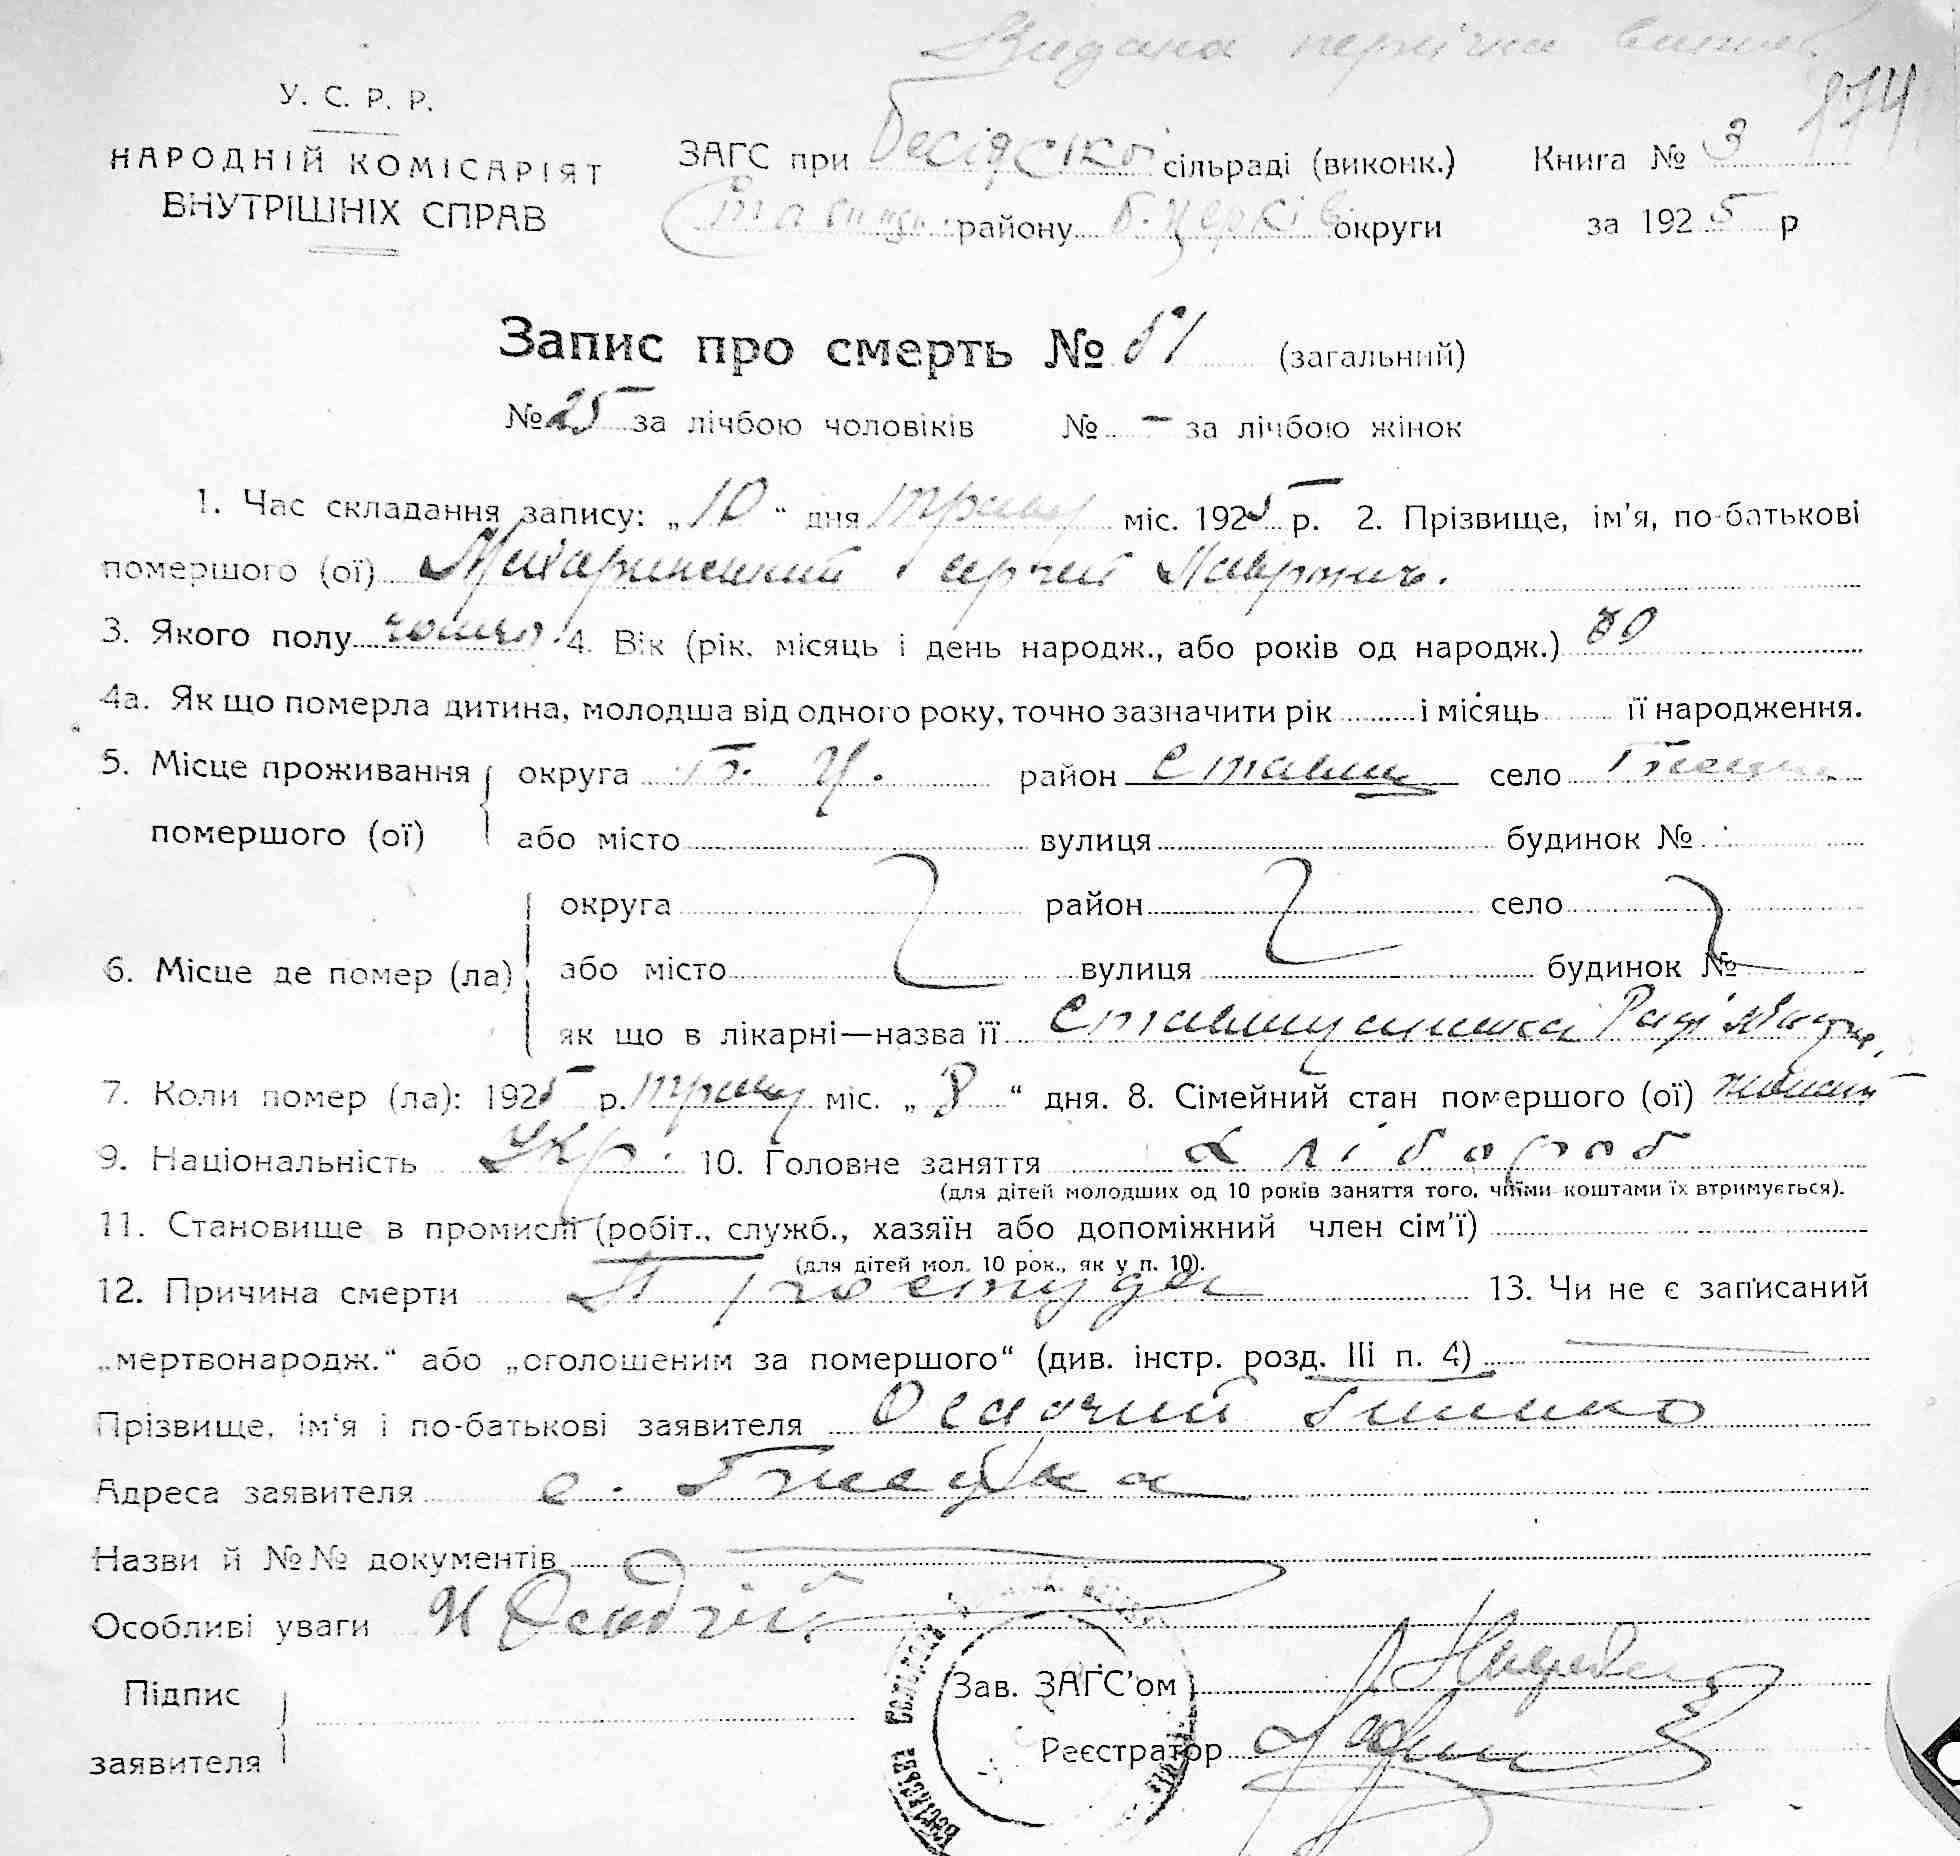 Видана
174
У. С. Р. Р.
НАРОДНІЙ КОМІСАРІЯТ
ВНУТРІШНІХ СПРАВ
ЗАГС при Бесідскі сільраді (виконк.) Книга № 3
Ставищ. району Б. Церків округи за 1925 р
Запис про смерть № 61 (загальний)
№ 25 за лічбою чоловіків № – за лічбою жінок
1. Час складання запису: „10“ дня травн міс. 1925 р. 2. Прізвище, ім'я, по-батькові
помершого (ої) Сергей Лаврович.
3. Якого полу 4. Вік (рік, місяць і день народж., або років од народж.) 80
4а. Як що померла дитина, молодша від одного року, точно зазначити рік і місяць її народження.
5. Місце проживання округа Б. Ц. район Ставищ село
помершого (ої) або місто вулиця будинок №
округа район село
6. Місце де помер (ла) або місто вулиця будинок №
як що в лікарні—назва її Ставищанська
7. Коли помер (ла): 1925 р. травн міс. „8“ дня. 8. Сімейний стан помершого (ої)
9. Національність Укр. 10. Головне заняття Хлібороб
(для дітей молодших од 10 років заняття того, чиїми коштами їх втримується).
11. Становище в промислі (робіт., служб., хазяїн або допоміжний член сім'ї)
(для дітей мол. 10 рок., як у п. 10).
12. Причина смерти Простуда 13. Чи не є записаний
„мертвонародж.“ або „оголошеним за помершого“ (див. інстр. розд. III п. 4)
Прізвище, ім'я і по-батькові заявителя Осадчий
Адреса заявителя с. Гнецька
Назви й №№ документів
Особливі уваги
Підпис
заявителя
Зав. ЗАГС'ом
Реєстратор